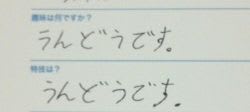 趣味は何ですか？
うんどうです。
特技は？
うんどうです。